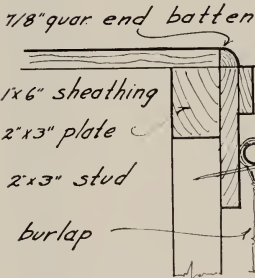 7/8" quar. end batten
1"x6" sheathing
2"x3" plate
2"x3" stud
burlap